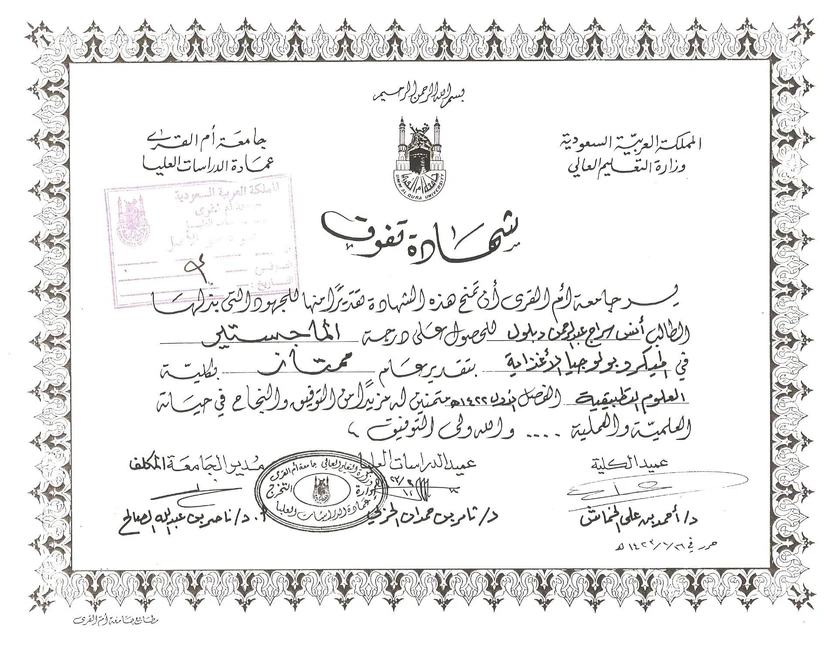 بسم الله الرحمن الرحيم
المملكة العربية السعودية
وزارة التعليم العالي
جامعة أم القرى
عمادة الدراسات العليا
UMM AL QURA UNIVERSITY
المملكة العربية السعودية
شهادة تفوق
يسر جامعة أم القرى أن تمنح هذه الشهادة تقديرًا منها للجهود التي بذلها
الطالب أنس سراج عبدالرحمن دبلول للحصول على درجة الماجستير
في الميكروبولوجيا الأغذية بتقدير عام ممتاز بكلية
العلوم التطبيقية الفصل الأول ١٤٢٢هـ متمنين له مزيدًا من التوفيق والنجاح في حياته
العلمية والعملية .... والله ولي التوفيق ،
عميد الكلية
عميد الدراسات العليا
مدير الجامعة المكلف
وزارة التعليم العالي جامعة أم القرى
إدارة التخرج
عمادة الدراسات العليا
د/ أحمد بن علي الخماش
د/ ثامر بن حمدان الحربي
أ.د/ ناصر بن عبدالله الصالح
حرر في
مطابع جامعة أم القرى